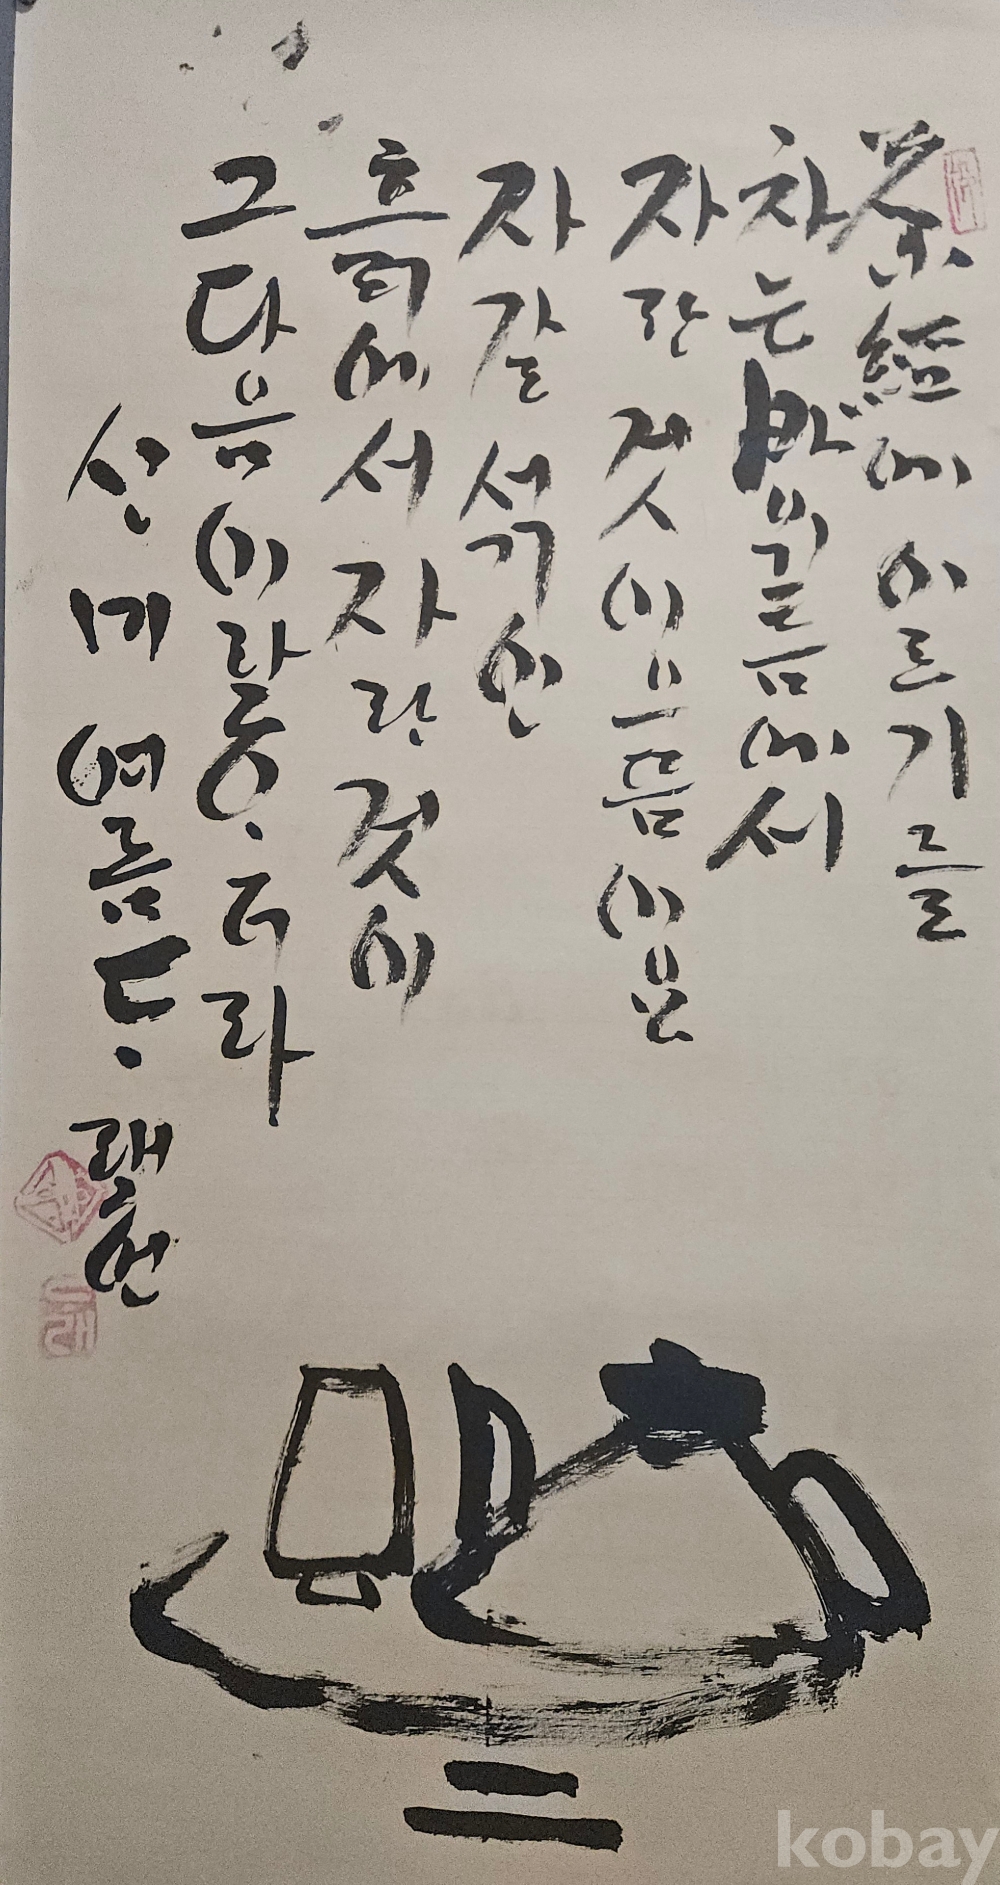 茶經에 이르기를
차는 바위 에서
자란 것이 으뜸이요
자갈 섞인
흙에서 자란 것이
그 다음이라 ᄒᆞ더라
신미 여름 ᄃᆞ래헌
kobay